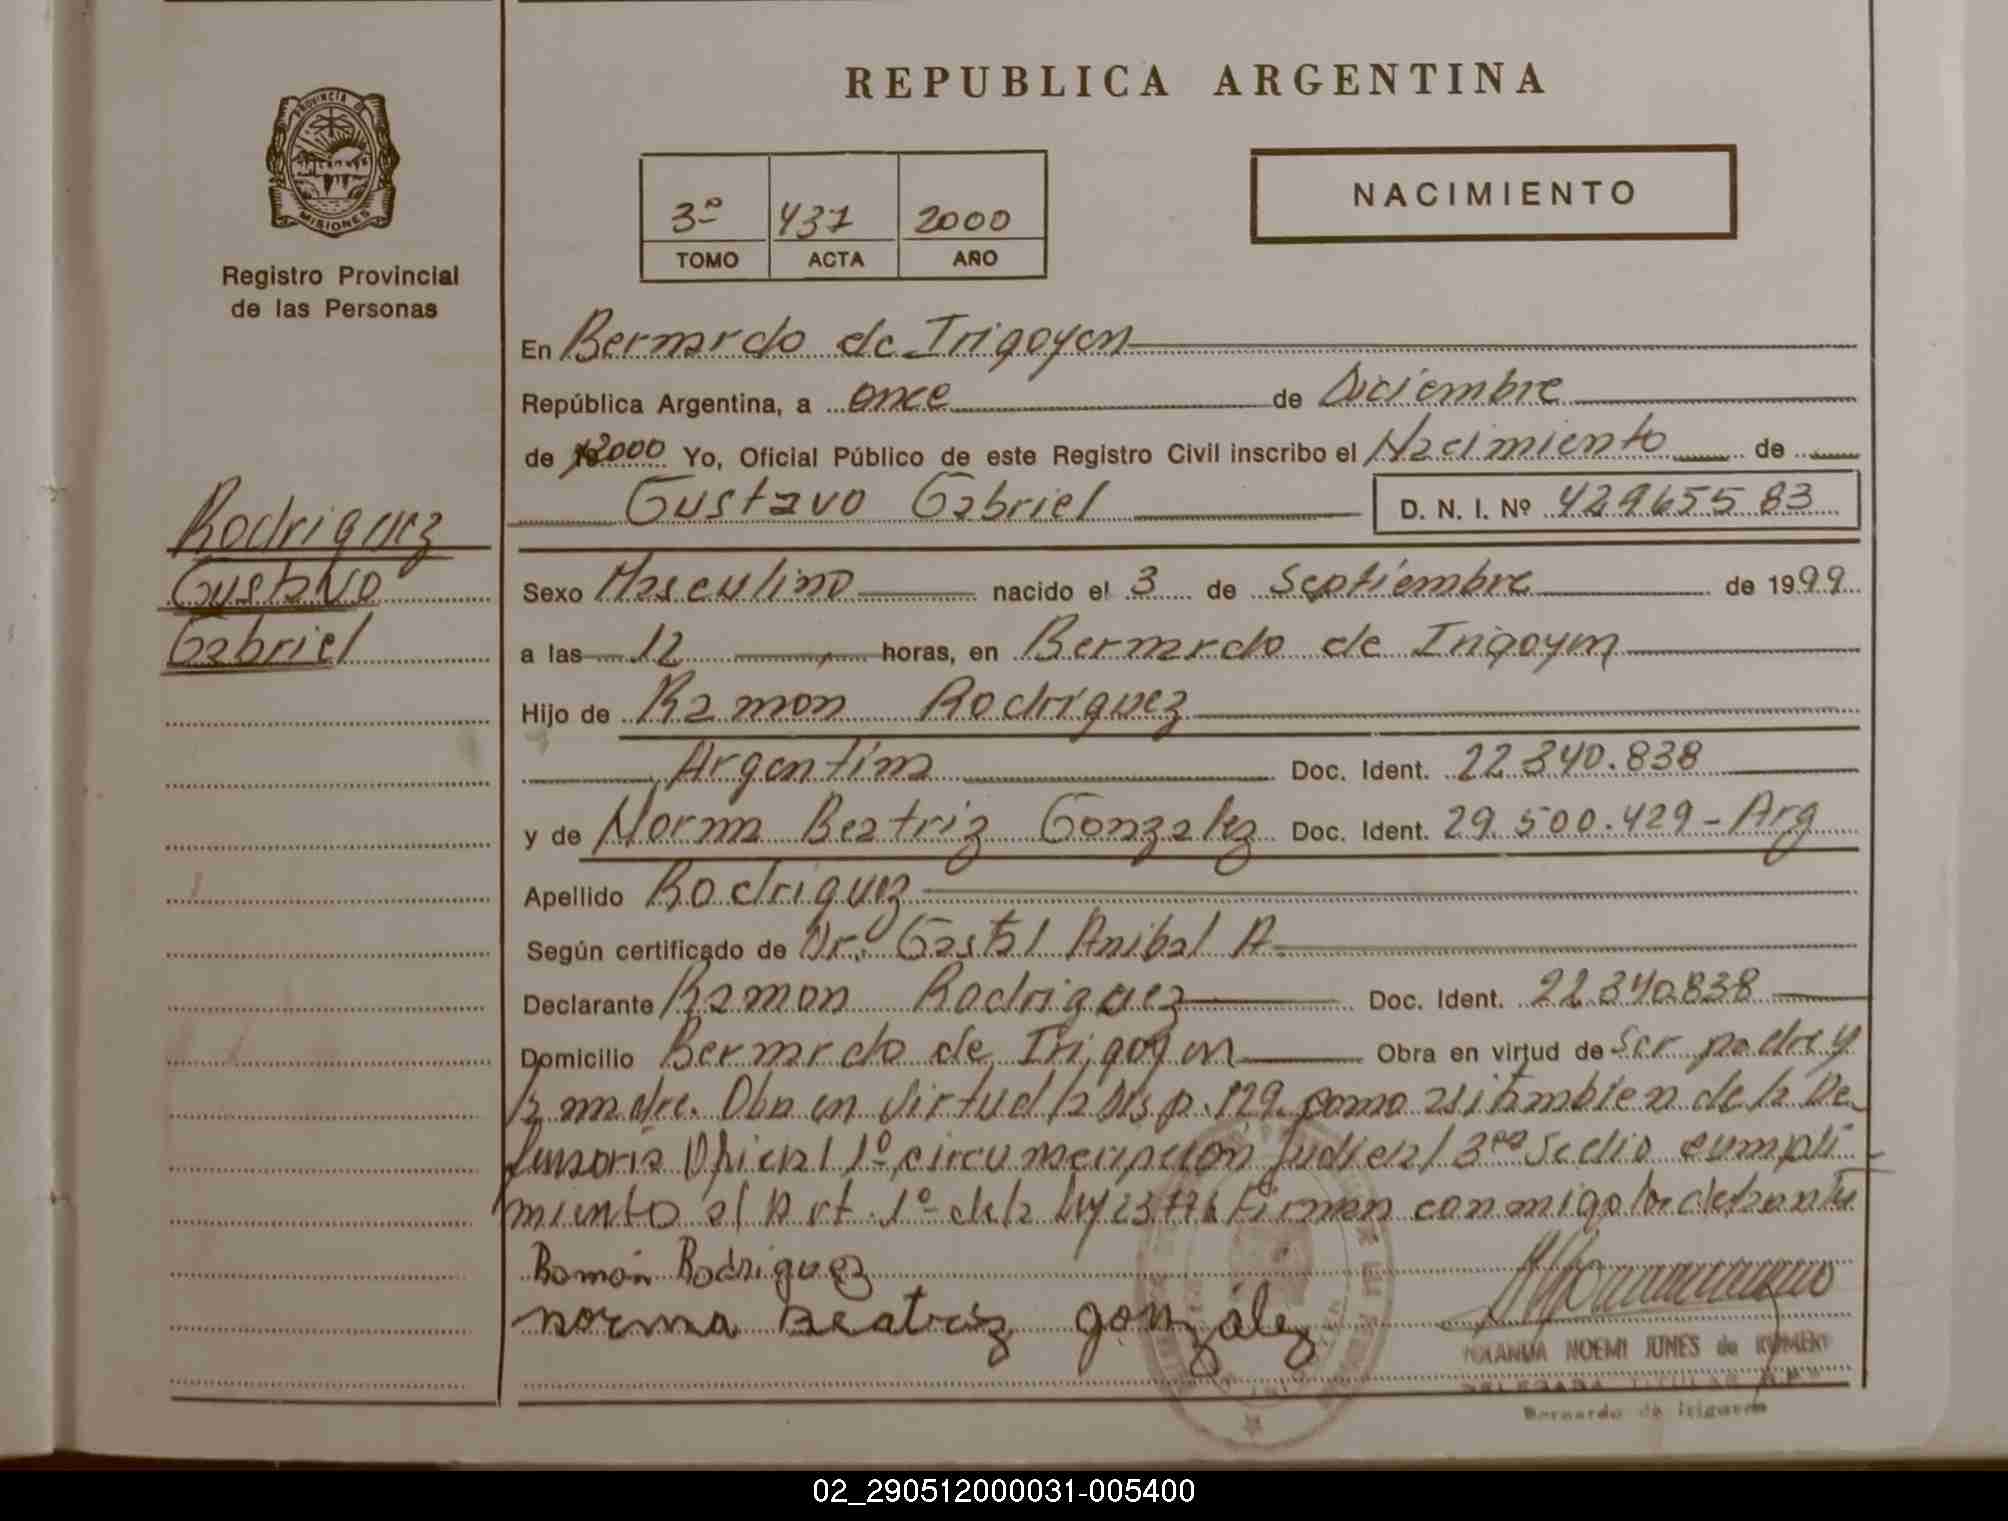 REPUBLICA ARGENTINA
PROVINCIA DE
MISIONES
Registro Provincial
de las Personas
3º 437 2000
TOMO ACTA AÑO
NACIMIENTO
En Bernardo de Irigoyen
República Argentina, a once de Diciembre
de 2000 Yo, Oficial Público de este Registro Civil inscribo el Nacimiento de
Gustavo Gabriel D. N. I. Nº 42965583
Rodriguez
Gustavo
Gabriel
Sexo Masculino nacido el 3 de Septiembre de 1999
a las 12 horas, en Bernardo de Irigoyen
Hijo de Ramón Rodríguez
Argentina Doc. Ident. 22.340.838
y de Norma Beatriz Gonzalez Doc. Ident. 29.500.429 - Arg
Apellido Rodriguez
Según certificado de Dr. Gastal Anibal A
Declarante Ramon Rodriguez Doc. Ident. 22.340.838
Domicilio Bernardo de Irigoyen Obra en virtud de Ser padre y
la madre. Obra en virtud la Disp. 129 como asi tambien de la De
fensoria Oficial 1º circunscripción Judicial 3ra Se dio cumpli
miento al Art. 1º de la Ley 23776 Firman conmigo
Ramón Rodriguez
norma Beatriz gonzález
YOLANDA NOEMI JONES de
DELEGADA TITULAR
Bernardo de Irigoyen
02_290512000031-005400